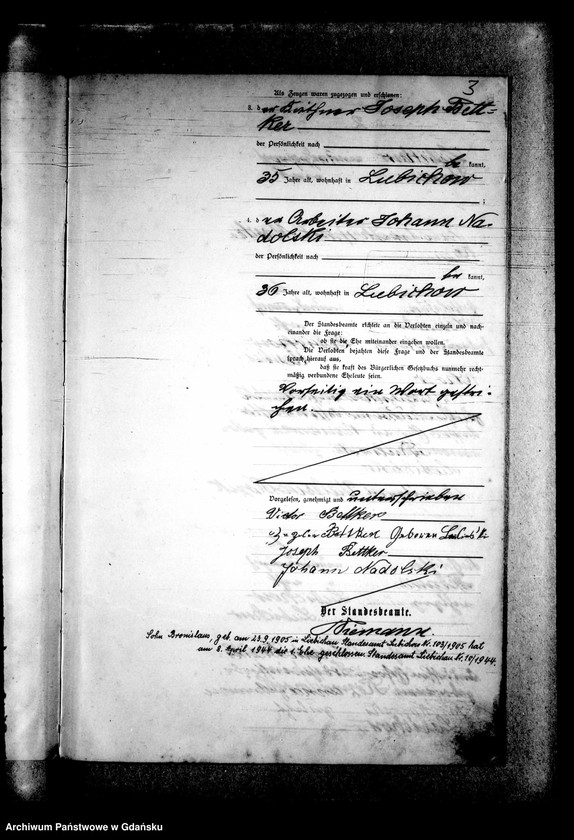 3
Als Zeugen waren zugezogen und erschienen:
3. der Käthner Joseph Bett=
ker
der Persönlichkeit nach
be kannt,
35 Jahre alt, wohnhaft in Lubichow
;
4. der Arbeiter Johann Na-
dolski
der Persönlichkeit nach
be kannt,
36 Jahre alt, wohnhaft in Lubichow
Der Standesbeamte richtete an die Verlobten einzeln und nach-
einander die Frage:
ob sie die Ehe miteinander eingehen wollen.
Die Verlobten bejahten diese Frage und der Standesbeamte
sprach hierauf aus,
daß sie kraft des Bürgerlichen Gesetzbuchs nunmehr recht-
mäßig verbundene Eheleute seien.
Vorseitig ein Wort gestri-
chen.
Vorgelesen, genehmigt und unterschrieben
Victor Bettker
Bettker Geboren
Joseph Bettker
Johann Nadolski
Der Standesbeamte.
Niemann.
Sohn Bronislaus, geb. am 23.9.1905 in Liebichau Standesamt Lubichow Nr. 103/1905 hat
am 8. April 1944 die 1. Ehe geschlossen. Standesamt Liebichau Nr. 10/1944.
Archiwum Państwowe w Gdańsku